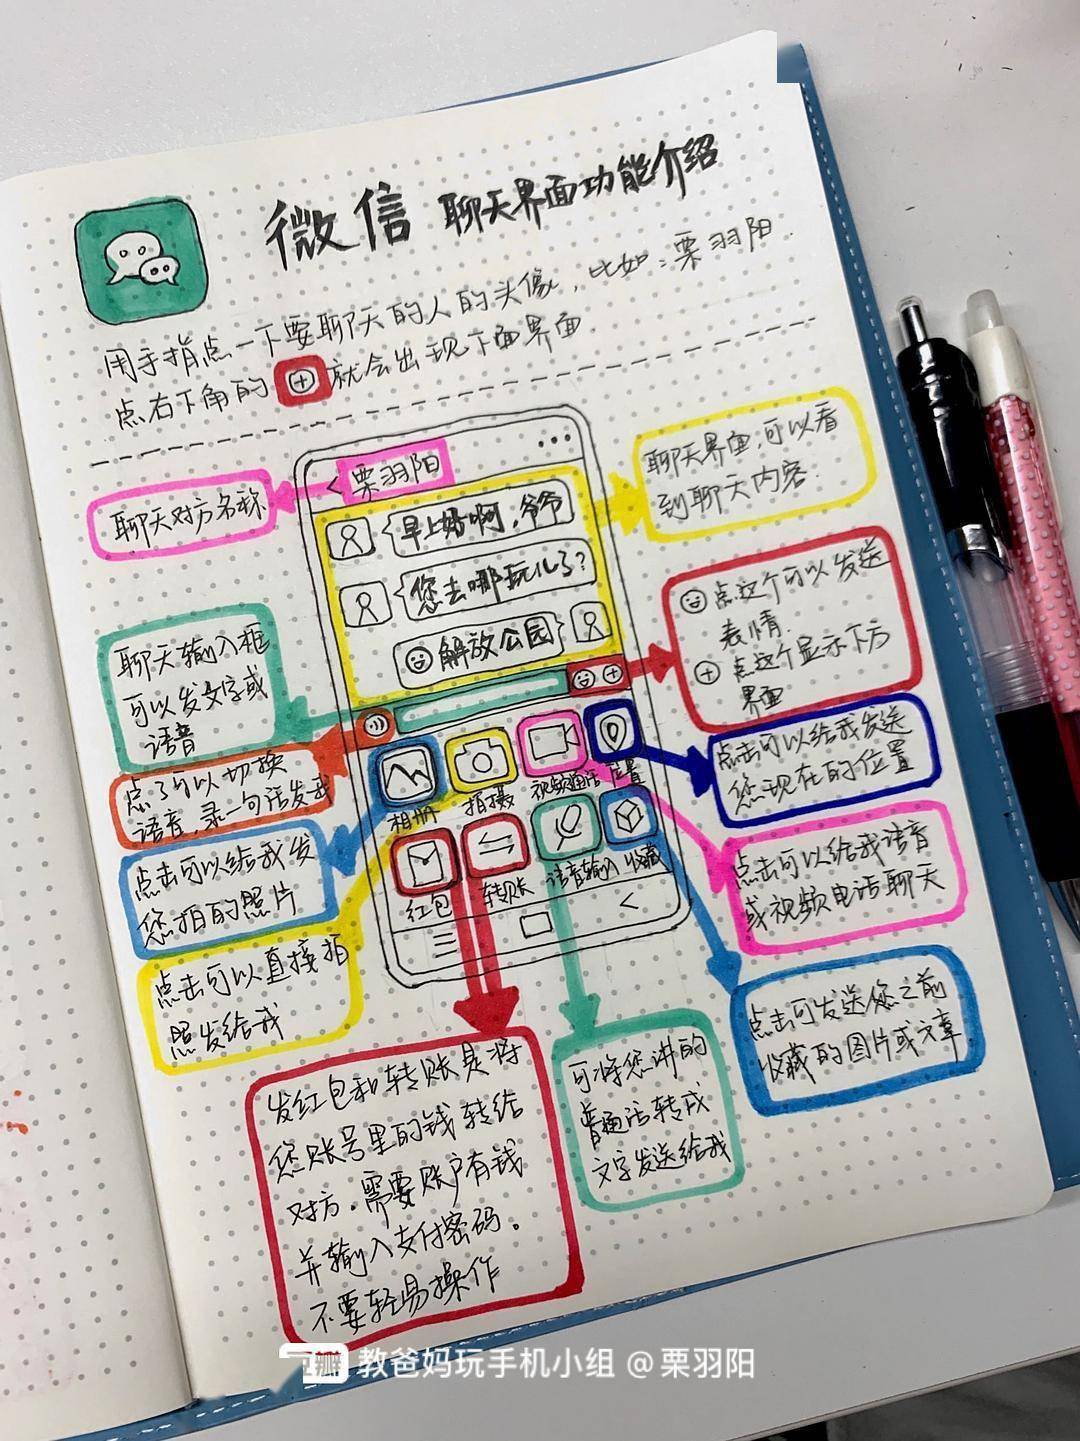 微信 聊天界面功能介绍
用手指点一下要聊天的人的头像，比如：栗羽阳.
点右下角的 ⊕ 就会出现下面界面.
聊天对方名称
< 栗羽阳 ...
早上好啊，爷爷
您去哪玩儿了？
解放公园
聊天界面，可以看
到聊天内容.
点这个可以发送
表情.
⊕ 点这个显示下方
界面
聊天输入框
可以发文字或
语音
点了可以切换
语音，录一句话发我
点击可以给我发
您拍的照片
点击可以直接拍
照发给我
相册
拍摄
视频通话
位置
红包
转账
语音输入
收藏
点击可以给我发送
您现在的位置
点击可以给我语音
或视频电话聊天
点击可发送您之前
收藏的图片或文章
发红包和转账是将
您账号里的钱转给
对方.需要账户有钱
并输入支付密码。
不要轻易操作
可将您讲的
普通话转成
文字发送给我
豆瓣 教爸妈玩手机小组 @栗羽阳